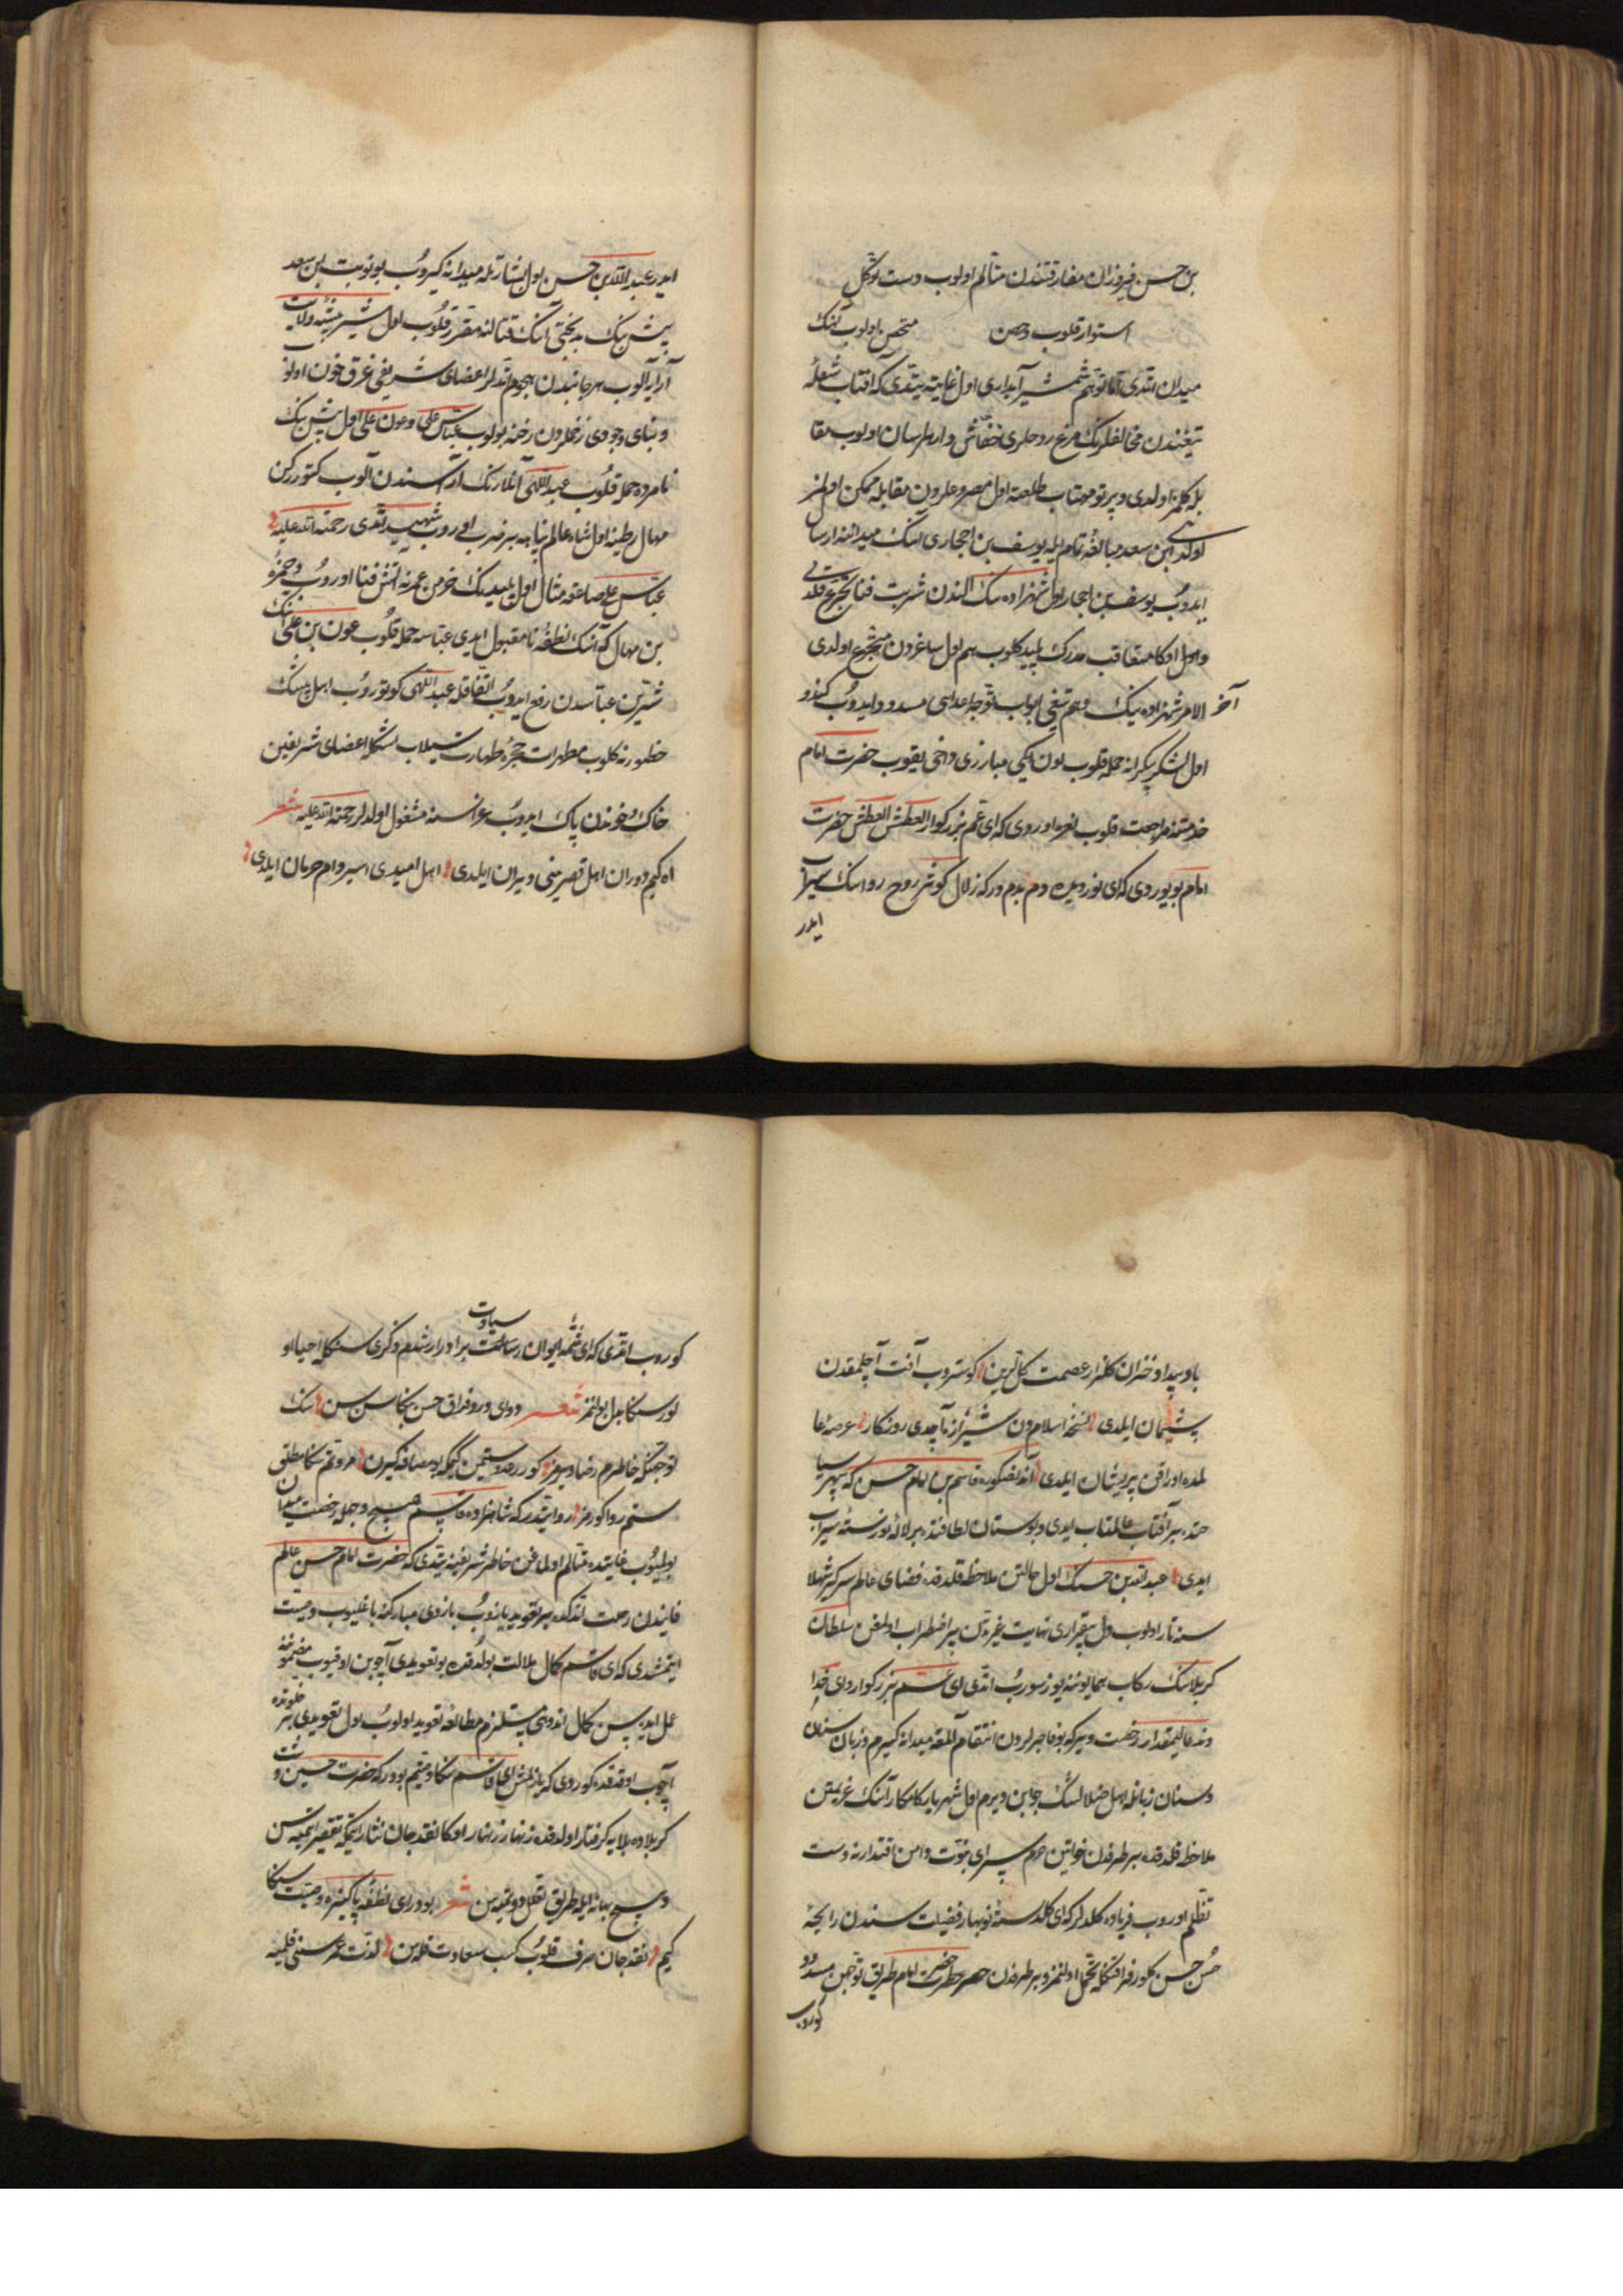 بن حسن فیروزان مفارقتندن متألم اولوب دست توکل
استوار قلوب وحصن متحصن اولوب آهنک
میدان ایتدی اما توهم شمشیر آبداری اول غایته یتدی که آفتاب شعلهٔ
تیغندن مخالفلرنک مرغ روحلری خفاش وار هراسان اولوب مقا
بله کلمز اولدی و پرتو مهتاب طلعته اول مصروعلردن مقابله ممکن اولمز
اولدی ابن سعد مبالغهٔ تمام ایله یوسف بن احجاری انک میداننه ارسال
ایدوب یوسف بن احجار اول شهزاده نک الندن شربت فنا تجرع قلدی
واول اوکا متعاقب مدرک پلید کلوب هم اول ساغردن متجرع اولدی
آخر الامر شهزاده نیک وهم تیغی ابواب توجه اعدایی مسدود ایدوب کندو
اول لشکر بیکرانه حمله قلوب اون ایکی مبارزی داخی یقوب حضرت امام
خدمتنه مراجعت قلوب نعره اوردی که ای عم بزرکوار العطش العطش حضرت
امام بویوردی که ای نور دیده دم بدم درکه زلال کوثر روح روانک سیراب
ایدر
ایدر عبد الله بن حسن اول بشارتله میدانه کیروب بو نوبت بن سعد
بیش بیک بدبختی آنک قتالنه مقرر قلوب اول شیر بیشهٔ ولایت
آرایه آلوب هر جانبدن هجوم ایتدلر اعضای شریفی غرق خون اولو
وبنای وجودی زخملردن رخنه بولوب عباس علی وعون علی اول بیش بیک
نامرده حمله قلوب عبد اللهی آنلارنک آراسندن آلوب کتوررکن
اول شاه عالم پناهه بر ضرب اوروب شهید ایتدی رحمة الله علیه
عباس علی صاعقه مثال اول پلیدنک خرمن عمرنه آتش فنا اوروب وحمزهٔ
بن مهال که آنک نطفهٔ نامقبول ایدی عباسه حمله قلوب عون بن علی آنک
شرین عباسدن رفع ایدوب اتفاقله عبد اللهی کوتوروب اهل بیتنک
حضورنه کلوب مطهرات حجرهٔ طهارت سیلاب اشکله اعضای شریفین
خاک وخوندن پاک ایدوب عزاسنه مشغول اولدلر رحمة الله علیه شعر
اه کیم دوران امل قصرینی ویران ایلدی اهل امیدی اسیر دام حرمان ایلدی
باد بیداد خزان کلزار عصمت کل لرین کوستروب آفت آچلمقدن
پشیمان ایلدی نسخهٔ اسلامدن شیرازه آچدی روزکار عرصهٔ عا
لمده اوراقن پریشان ایلدی آندنصکره قاسم بن امام حسن که سپهر سیا
حتده بر آفتاب عالمتاب ایدی وبوستان لطافتده بر لالهٔ نورسته سیراب
ایدی عبد الله بن حسنک اول حالتن ملاحظه قلدقده فضای عالم سرکیر شهلا
سنه تار اولوب دل بیقراری نهایت غیرتدن پر اضطراب اولمغن سلطان
کربلانک رکاب همایوننه یوز سوروب ایتدی ای عم بزرکوار وای خدا
وند عالیمقدار رخصت ویر که بو فاجرلردن انتقام آلمغه میدانه کیرم وزبان سنان
دستان زبانله اهل ضلالتک جوابن ویرم اول شهریار کامکار آنک عزیمتن
ملاحظه قلدقده هر طرفدن خواتین حرم سرای نبوت دامن اقتدارنه دست
تظلم اوروب فریاده کلدلر که ای کلدستهٔ نوبهار فضیلت سندن رایحهٔ
حسن حسن کلور فراقنکله تحمل اولنمز وبر طرفدن حضرت امام طریق توجهن مسدود
کوروب
کوروب ایتدی که ای ثمرهٔ ایوان رسالت سیادت برادرار شدم ذکری سنکله احیا او
لور سنکا بدل بولنمز شعر دوای درد فراق حسن بکا سن سن سنک
توجهنکه خاطرم رضا ویرمز کوررم ستمین کیمکه بو مصافه کیرن مروتم سکا مطلق
ستم روا کورمز روایتدر که شاهزاده قاسم هیچ وجهله رخصت میدان
بولمیوب غایتده متألم اولدغن خاطر شریفینه یتدی که حضرت امام حسن عالم
فانیدن رحلت ایتدکده بر تعویذ یازوب بازوی مبارکنه باغلیوب وصیت
ایتمشدی که ای قاسم کمال ملالت بولدقده بو تعویذی آچوبن اوقیوب مضموننه
عمل ایده سن کمال اندوهی مستلزم مطالعهٔ تعویذ اولوب اول تعویذی بر خلوتده
آچوب اوقدقده کوردی که یازلمش ای قاسم سکا وصیتم بودر که حضرت حسین دشت
کربلاده بلایه کرفتار اولدقده زنهار زنهار اوکا نقد جان نثار ایتمکه تقصیر ایتمیه سن
وهیچ بهانه ایله طریق تعلل دوتمیه سن شعر بودر ای نطفهٔ پاکیزه وصیت سکا
کیم نقد جان صرف قلوب کسب سعادت قلسن لذت عمر سنی قلمیه